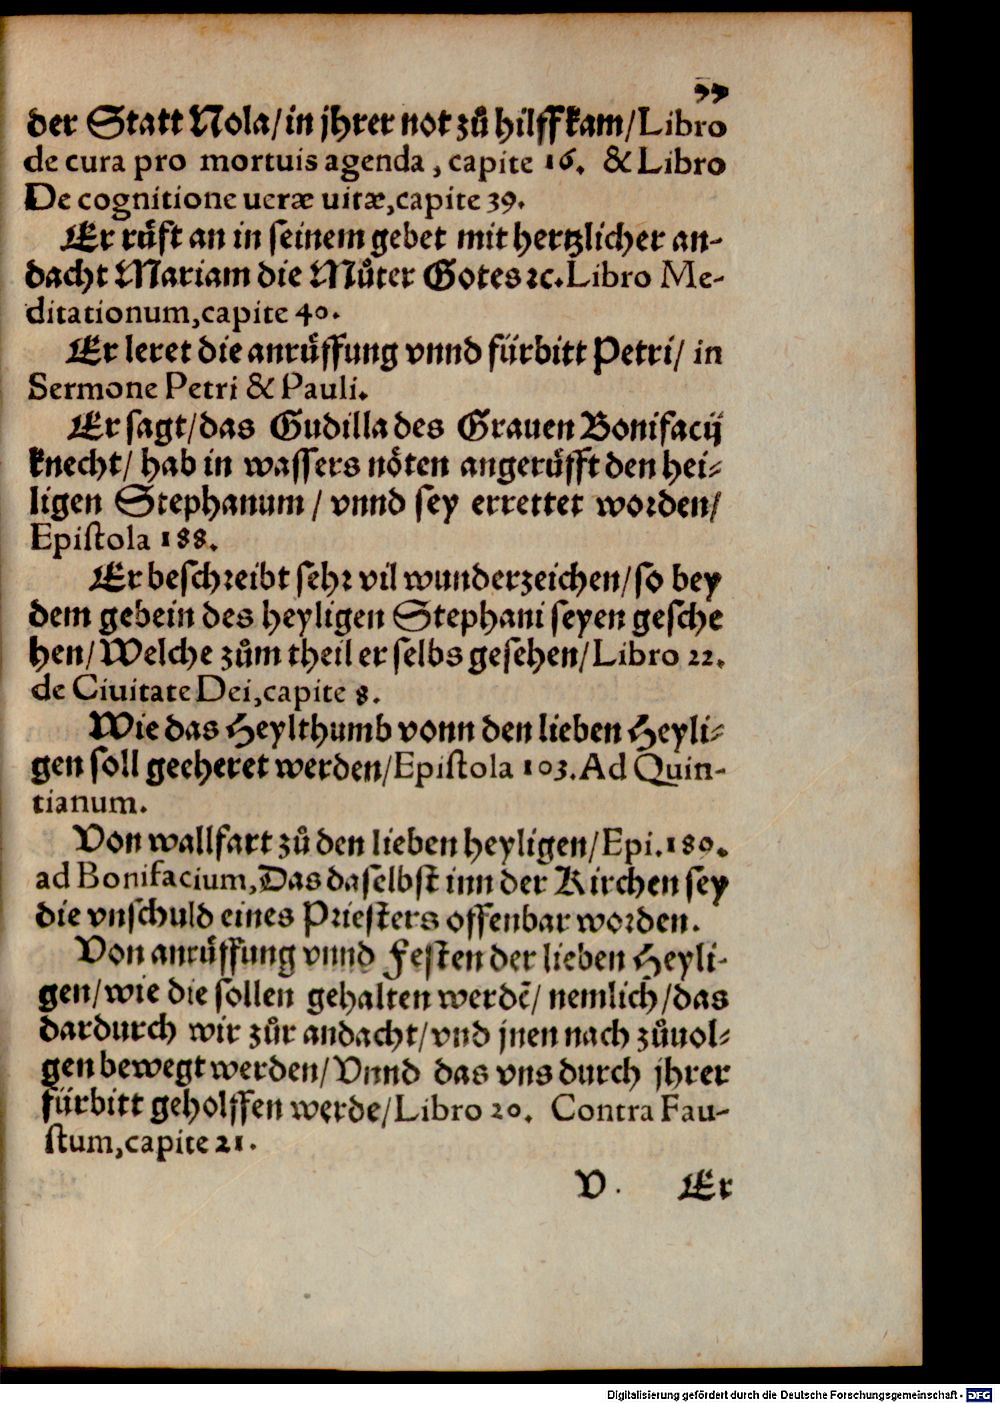 77
der Statt Nola/in jhrer not zů hilff kam/Libro
de cura pro mortuis agenda, capite 16. & Libro
De cognitione ueræ uitæ,capite 39.
Er rüft an in seinem gebet mit hertzlicher an-
dacht Mariam die Můter Gotes ꝛc.Libro Me-
ditationum,capite 40.
Er leret die anrüffung vnnd fürbitt Petri/ in
Sermone Petri & Pauli.
Er sagt/das Gudilla des Grauen Bonifacij
knecht/ hab in wassers nöten angerüfft den hei-
ligen Stephanum / vnnd sey errettet worden/
Epistola 188.
Er beschreibt sehr vil wunderzeichen/so bey
dem gebein des heyligen Stephani seyen gesche
hen/Welche zům theil er selbs gesehen/Libro 22.
de Ciuitate Dei,capite 8.
Wie das Heylthumb vonn den lieben Heyli-
gen soll geeheret werden/Epistola 103.Ad Quin-
tianum.
Von wallfart zů den lieben heyligen/Epi.189.
ad Bonifacium,Das daselbst inn der Kirchen sey
die vnschuld eines Priesters offenbar worden.
Von anrüffung vnnd Festen der lieben Heyli-
gen/wie die sollen gehalten werdē/ nemlich/das
dardurch wir zůr andacht/vnd jnen nach zůuol-
gen bewegt werden/Vnnd das vns durch jhrer
fürbitt geholffen werde/Libro 20. Contra Fau-
stum,capite 21.
V. Er
Digitalisierung gefördert durch die Deutsche Forschungsgemeinschaft - DFG